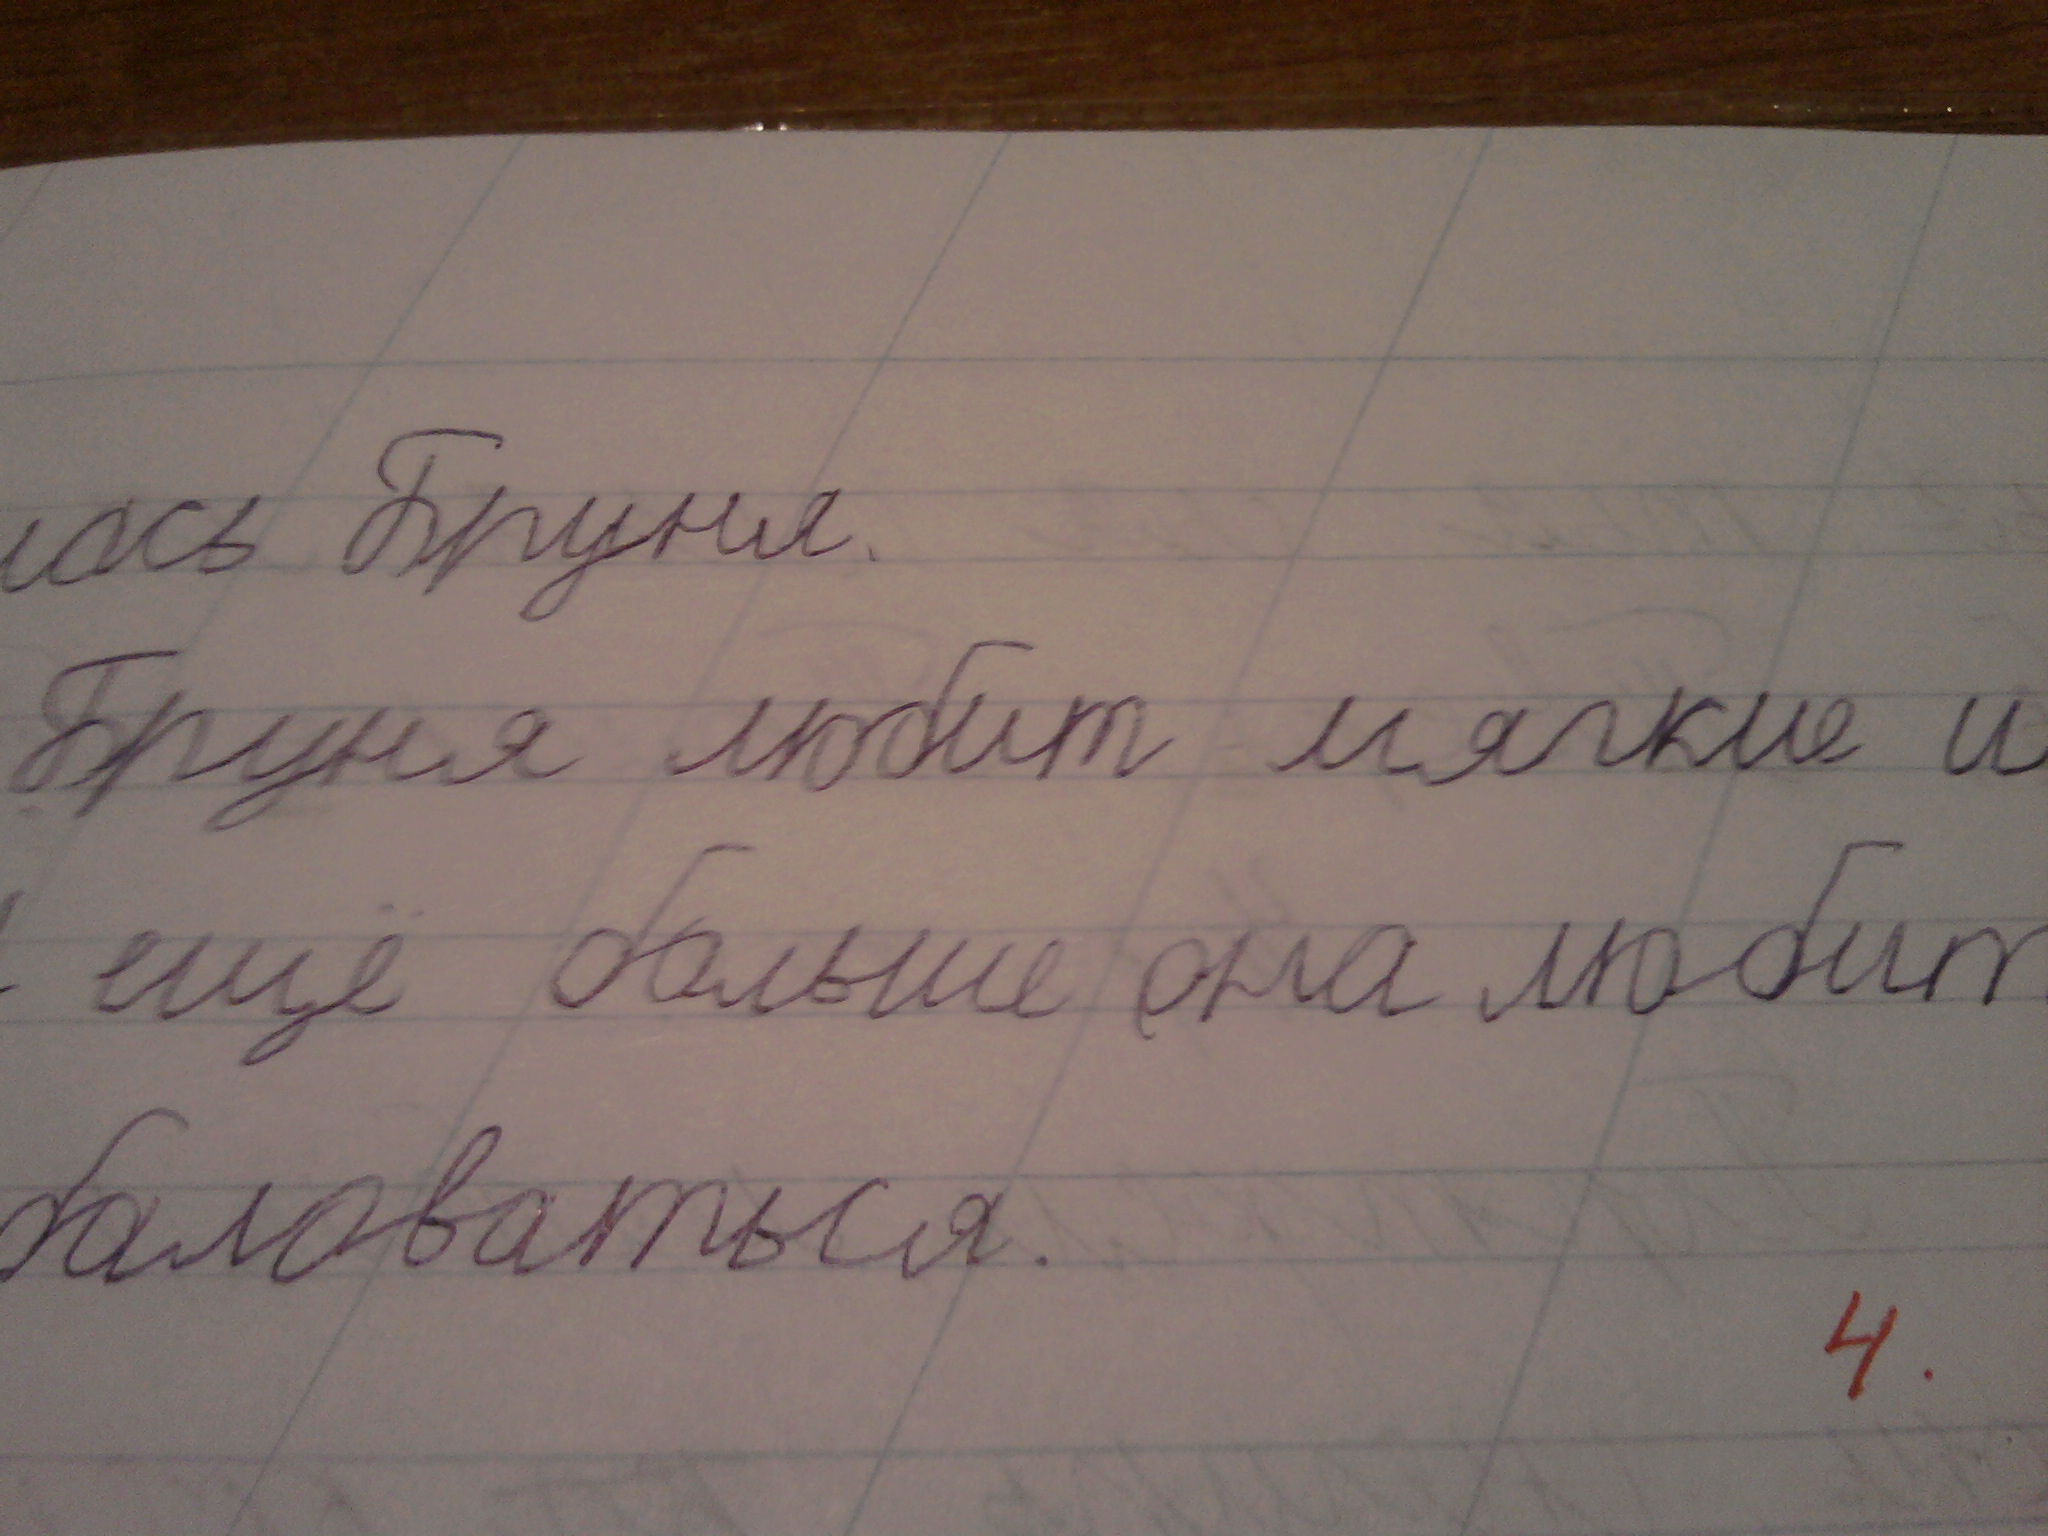 лась Бруня.
Бруня любит мягкие и
И ещё больше она любит
баловаться.
4.